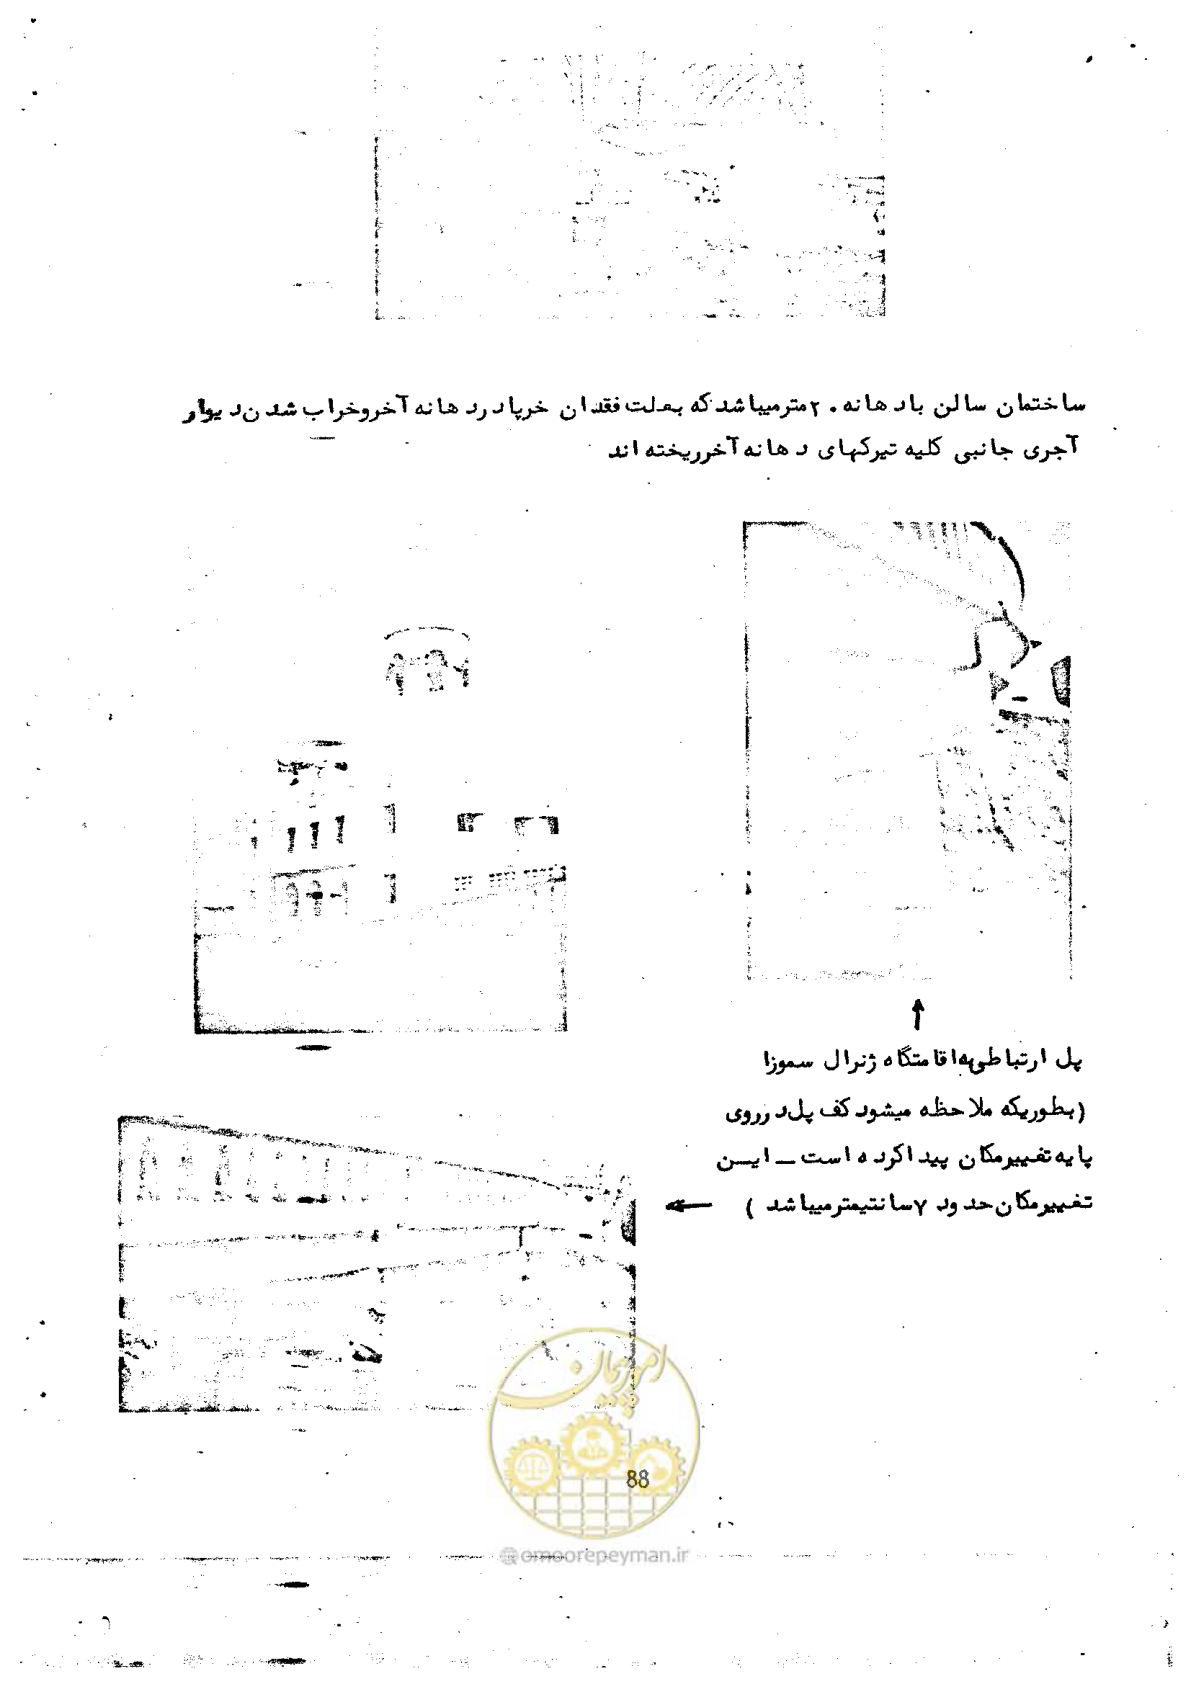 ساختمان سالن با دهانه ۲۰ مترمیباشد که بعلت فقدان خرپا در دهانه آخر و خراب شدن دیوار
آجری جانبی کلیه تیرکهای دهانه آخر ریخته اند
پل ارتباطی به اقامتگاه ژنرال سموزا
(بطوریکه ملاحظه میشود کف پل در روی
پایه تغییر مکان پیدا کرده است ـ ایـن
تغییر مکان حدود ۷ سانتیمتر میباشد )
امور پیمان
88
@omoorepeyman.ir